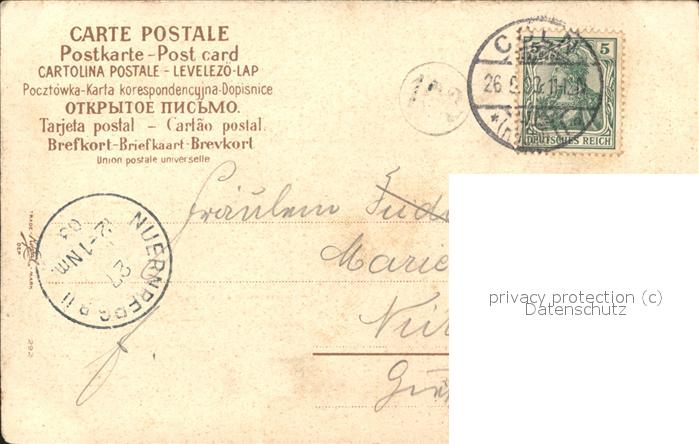 CARTE POSTALE
Postkarte - Post card
CARTOLINA POSTALE - LEVELEZÖ-LAP
Pocztówka-Karta korespondencyjna-Dopisnice
ОТКРЫТОЕ ПИСЬМО.
Tarjeta postal - Cartão postal.
Brefkort-Briefkaart-Brevkort
Union postale universelle
CÖLN
26 9
5 5
DEUTSCHES REICH
NUERNBERG
27
12-1 Nm.
03
Fräulein
Marie
TRADE MARK
292
privacy protection (c)
Datenschutz